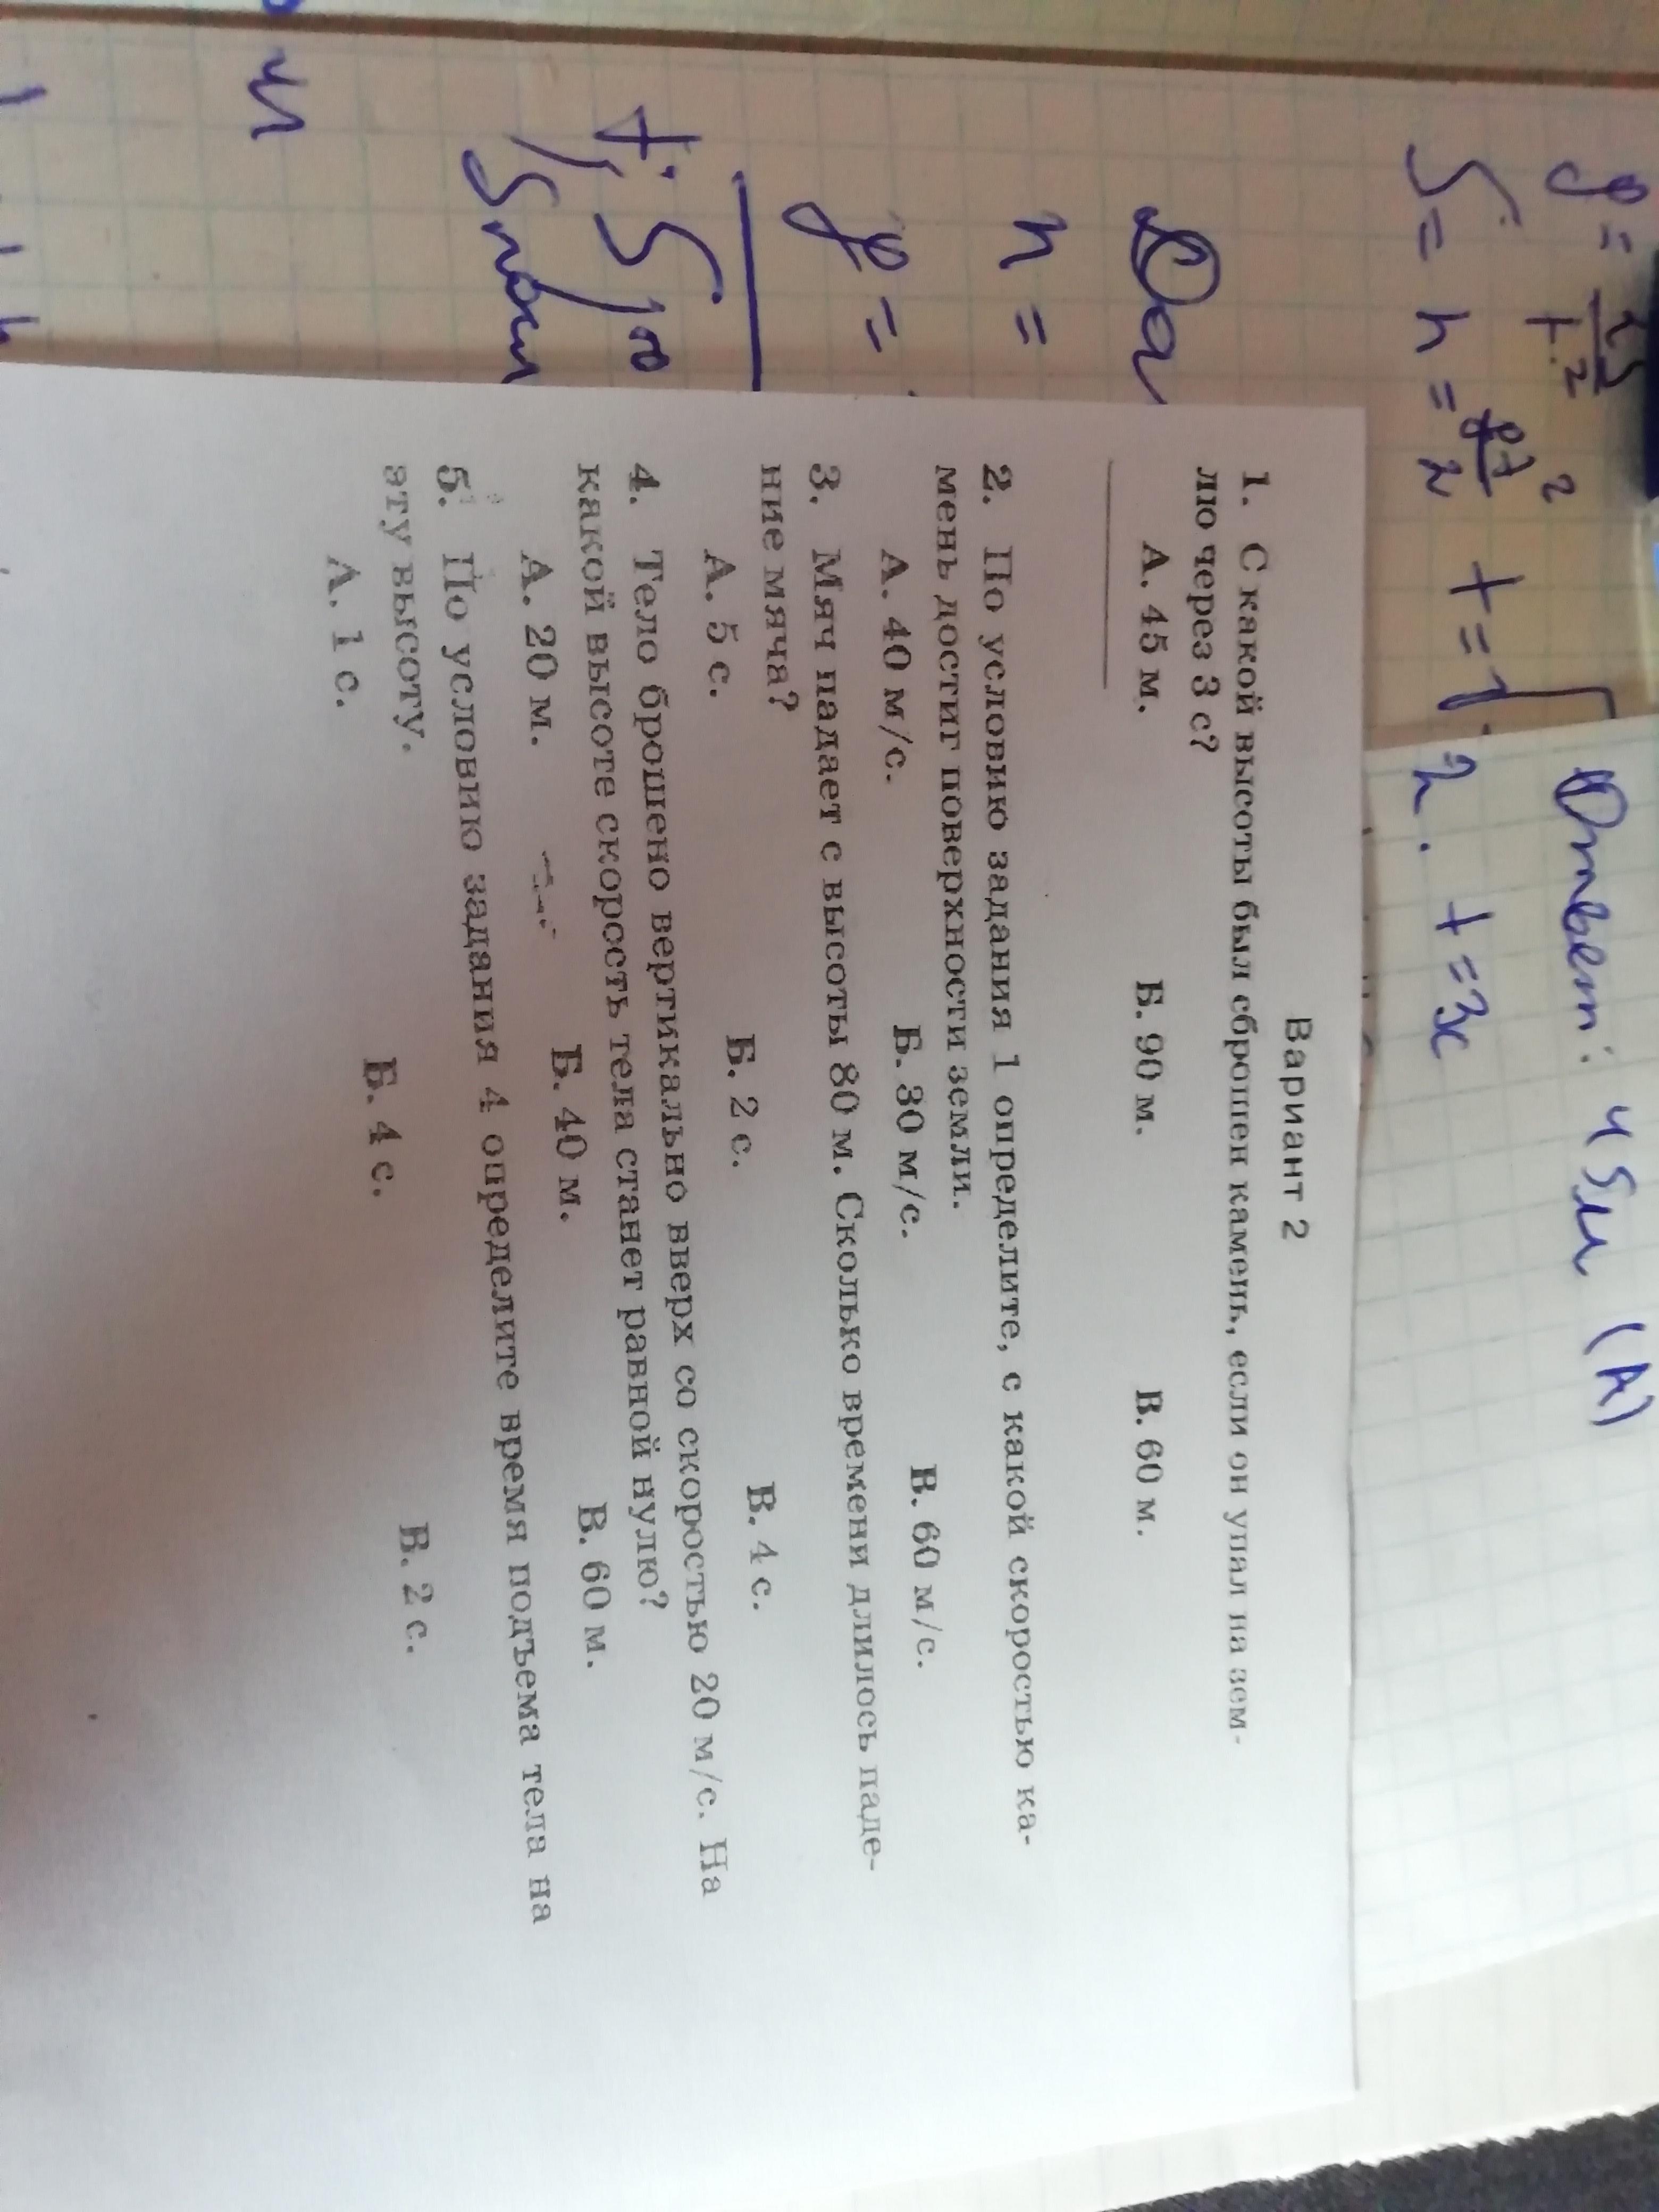 Ответ: 45м (А)
S = h = gt²/2 t = √
2. t = 3с
Да
h =
g =
t; S
Вариант 2
1. С какой высоты был сброшен камень, если он упал на зем-
лю через 3 с?
А. 45 м. Б. 90 м. В. 60 м.
2. По условию задания 1 определите, с какой скоростью ка-
мень достиг поверхности земли.
А. 40 м/с. Б. 30 м/с. В. 60 м/с.
3. Мяч падает с высоты 80 м. Сколько времени длилось паде-
ние мяча?
А. 5 с. Б. 2 с. В. 4 с.
4. Тело брошено вертикально вверх со скоростью 20 м/с. На
какой высоте скорость тела станет равной нулю?
А. 20 м. Б. 40 м. В. 60 м.
5. По условию задания 4 определите время подъема тела на
эту высоту.
А. 1 с. Б. 4 с. В. 2 с.